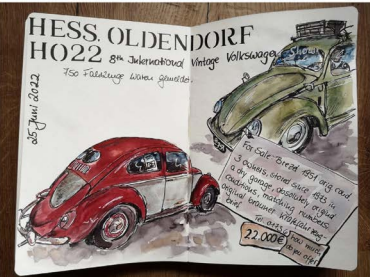 HESS. OLDENDORF
HO22 8th International Vintage Volkswagen Show
750 Fahrzeuge waren gemeldet.
25. Juni 2022
For Sale: Brezel 1951 orig. cond.
3 owners, stored since 1973 in
a dry garage, absolutely original
conditions, matching numbers,
original brauner Kraftfahrzeug-
brief
Tel.
22.000€
how much
do you offer